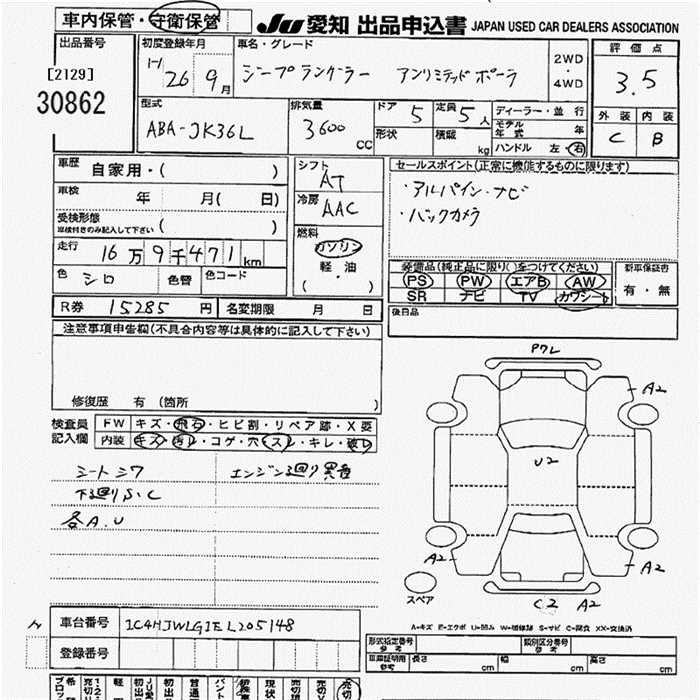 車内保管・守衛保管
JU 愛知 出品申込書 JAPAN USED CAR DEALERS ASSOCIATION
出品番号
[2129]
30862
初度登録年月
H 26 9月
車名・グレード
ジープラングラー アンリミテッドポーラ
2WD
・
4WD
評価点
3.5
外装 内装
C B
型式
ABA-JK36L
排気量
3600 CC
ドア 5
形状
定員 5人
積載 kg
ディーラー・並行
モデル年式 年
ハンドル 左・右
車歴 自家用・( )
車検 年 月( 日)
受検形態
※検付きのみ記入して下さい ( )
走行 16万9千471km
色 シロ 色替 色コード
シフト
AT
冷房
AAC
燃料
ガソリン
軽・油
( ・ )
セールスポイント(正常に機能するものに限ります)
・アルパインナビ
・バックカメラ
装備品(純正品に限り○をつけてください)
PS PW エアB AW
SR ナビ TV カワシート
新車保証書
有・無
後日品
R券 15285円 名変期限 月 日
注意事項申告欄(不具合内容等は具体的に記入して下さい)
修復歴 有 (箇所 )
検査員
記入欄
FW キズ・飛石・ヒビ割・リペア跡・X要
内装 キズ・汚レ・コゲ・穴・スレ・キレ・破レ
シートシワ エンジン廻り異音
下廻りS.C
各A.U
Pワレ
A2
U2
A2
A2
C2 A2
スペア
A=キズ E=エクボ U=凹み W=補修跡 S=サビ C=腐食 XX=交換済
車台番号 1C4HJWLG1EL205148
登録番号
形式指定番号
参考
類別区分番号
参考
車庫証明用
参考
長さ cm 幅 cm 高さ cm